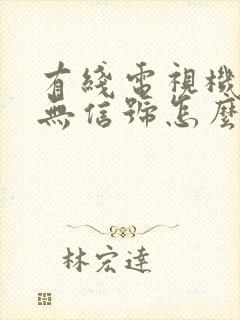 有綫電視機
無信號怎麼
林宏達